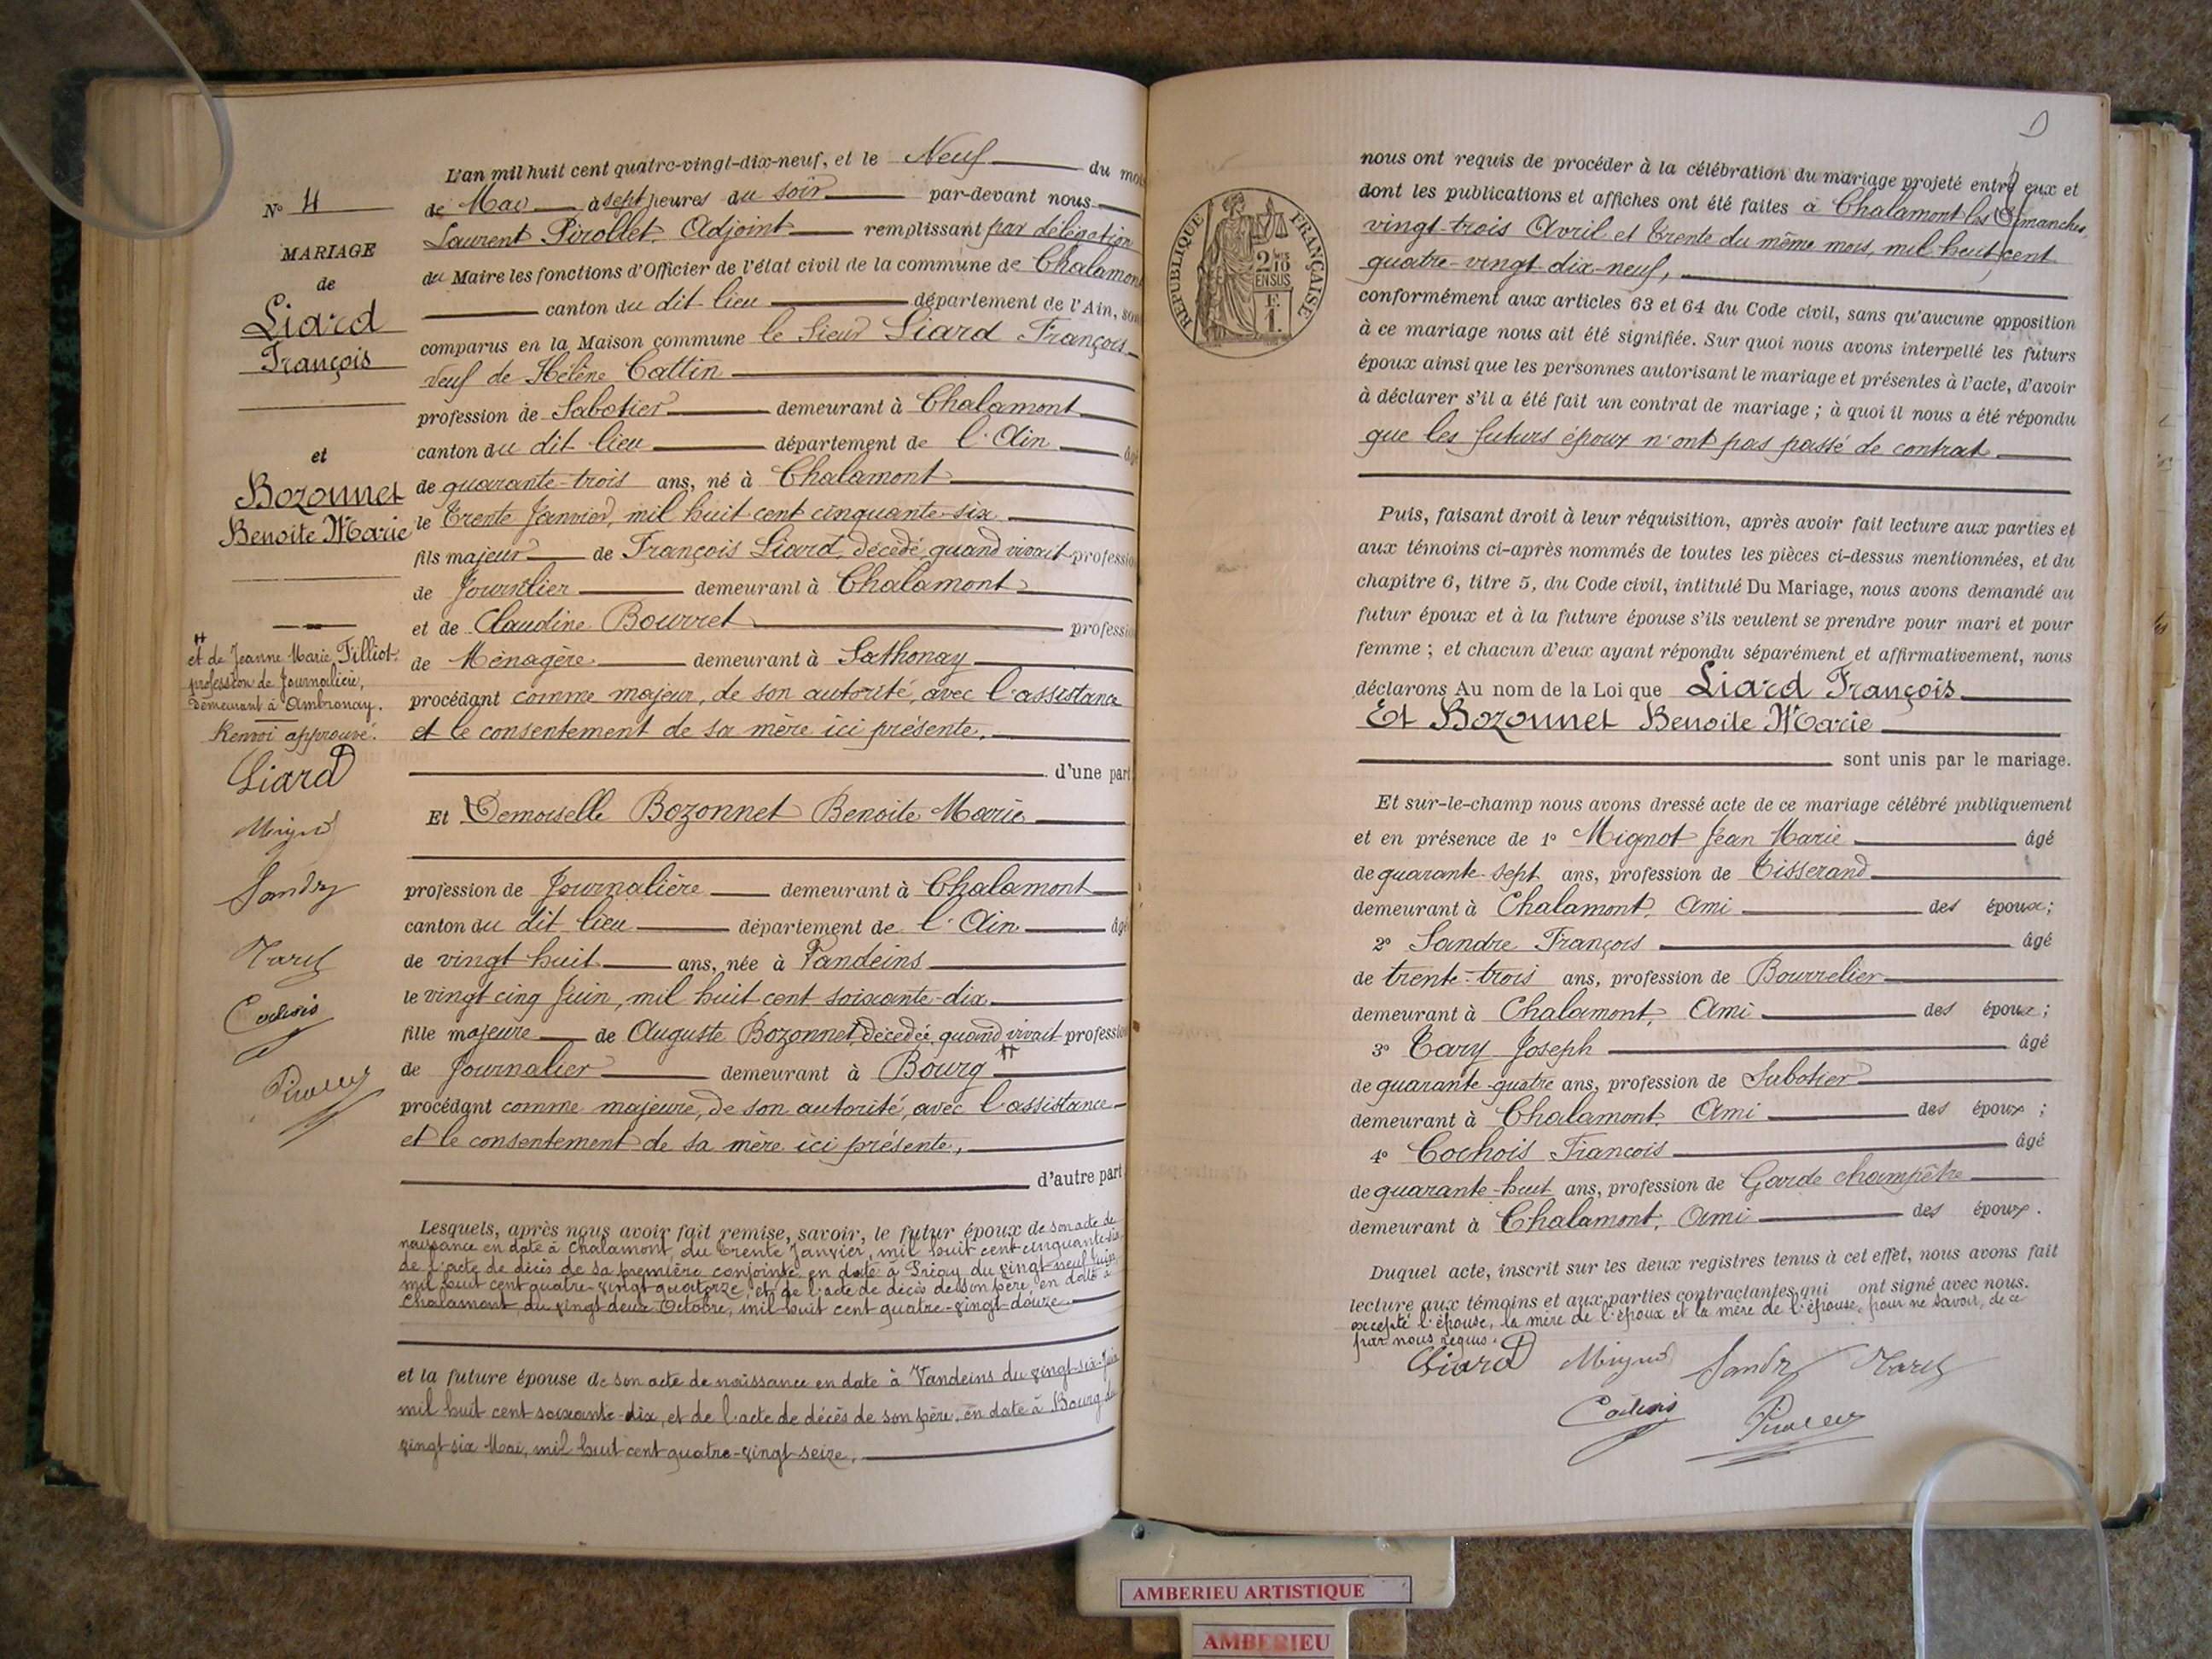 N° 4
MARIAGE
de
Liard
François
et
Bozonnet
Benoite Marie
et de Jeanne Marie Tilliot,
profession de Journalière,
demeurant à Ambronay.
Renvoi approuvé.
Liard
L'an mil huit cent quatre-vingt-dix-neuf, et le Neuf du mois
de Mai à sept heures du soir par-devant nous
Laurent Pirollet, Adjoint remplissant par délégation
du Maire les fonctions d'Officier de l'état civil de la commune de Chalamont
canton du dit lieu département de l'Ain, sont
comparus en la Maison commune le Sieur Liard François
veuf de Hélène Cattin
profession de Sabotier demeurant à Chalamont
canton du dit lieu département de l'Ain âgé
de quarante-trois ans, né à Chalamont
le trente Janvier, mil huit cent cinquante-six
fils majeur de François Liard, décédé, quand vivait profession
de Journalier demeurant à Chalamont
et de Claudine Bourret profession
de Ménagère demeurant à Sathonay
procédant comme majeur, de son autorité, avec l'assistance
et le consentement de sa mère ici présente,
d'une part
Et Demoiselle Bozonnet Benoite Marie
profession de Journalière demeurant à Chalamont
canton du dit lieu département de l'Ain âgée
de vingt huit ans, née à Vandeins
le vingt cinq Juin, mil huit cent soixante-dix
fille majeure de Auguste Bozonnet, décédée, quand vivait profession
de Journalier demeurant à Bourg
procédant comme majeure, de son autorité, avec l'assistance
et le consentement de sa mère ici présente,
d'autre part
Lesquels, après nous avoir fait remise, savoir, le futur époux de son acte de
naissance en date à Chalamont, du trente Janvier, mil huit cent cinquante-six
de l'acte de décès de sa première conjointe en date à Priay du vingt-neuf Juin
mil huit cent quatre-vingt quatorze, et de l'acte de décès de son père, en date à
Chalamont, du vingt deux Octobre, mil huit cent quatre-vingt-douze.
et la future épouse de son acte de naissance en date à Vandeins du vingt-six Juin
mil huit cent soixante-dix, et de l'acte de décès de son père, en date à Bourg du
vingt six Mai, mil huit cent quatre-vingt-seize.
RÉPUBLIQUE FRANÇAISE
2 10
EN SUS
F.
1.
nous ont requis de procéder à la célébration du mariage projeté entre eux et
dont les publications et affiches ont été faites à Chalamont les Dimanches,
vingt-trois Avril et trente du même mois, mil huit cent
quatre-vingt dix-neuf,
conformément aux articles 63 et 64 du Code civil, sans qu'aucune opposition
à ce mariage nous ait été signifiée. Sur quoi nous avons interpellé les futurs
époux ainsi que les personnes autorisant le mariage et présentes à l'acte, d'avoir
à déclarer s'il a été fait un contrat de mariage ; à quoi il nous a été répondu
que les futurs époux n'ont pas passé de contrat
Puis, faisant droit à leur réquisition, après avoir fait lecture aux parties et
aux témoins ci-après nommés de toutes les pièces ci-dessus mentionnées, et du
chapitre 6, titre 5, du Code civil, intitulé Du Mariage, nous avons demandé au
futur époux et à la future épouse s'ils veulent se prendre pour mari et pour
femme ; et chacun d'eux ayant répondu séparément et affirmativement, nous
déclarons Au nom de la Loi que Liard François
Et Bozonnet Benoite Marie
sont unis par le mariage.
Et sur-le-champ nous avons dressé acte de ce mariage célébré publiquement
et en présence de 1° Mignot Jean Marie âgé
de quarante-sept ans, profession de Tisserand
demeurant à Chalamont, Ami des époux;
2° Sandre François âgé
de trente-trois ans, profession de Bourrelier
demeurant à Chalamont, Ami des époux;
3° Tary Joseph âgé
de quarante-quatre ans, profession de Sabotier
demeurant à Chalamont, Ami des époux;
4° Cochois François âgé
de quarante-huit ans, profession de Garde champêtre
demeurant à Chalamont, Ami des époux.
Duquel acte, inscrit sur les deux registres tenus à cet effet, nous avons fait
lecture aux témoins et aux parties contractantes qui ont signé avec nous.
excepté l'épouse, la mère de l'époux et la mère de l'épouse, pour ne savoir, de ce
par nous requis.
Liard
AMBERIEU ARTISTIQUE
AMBERIEU